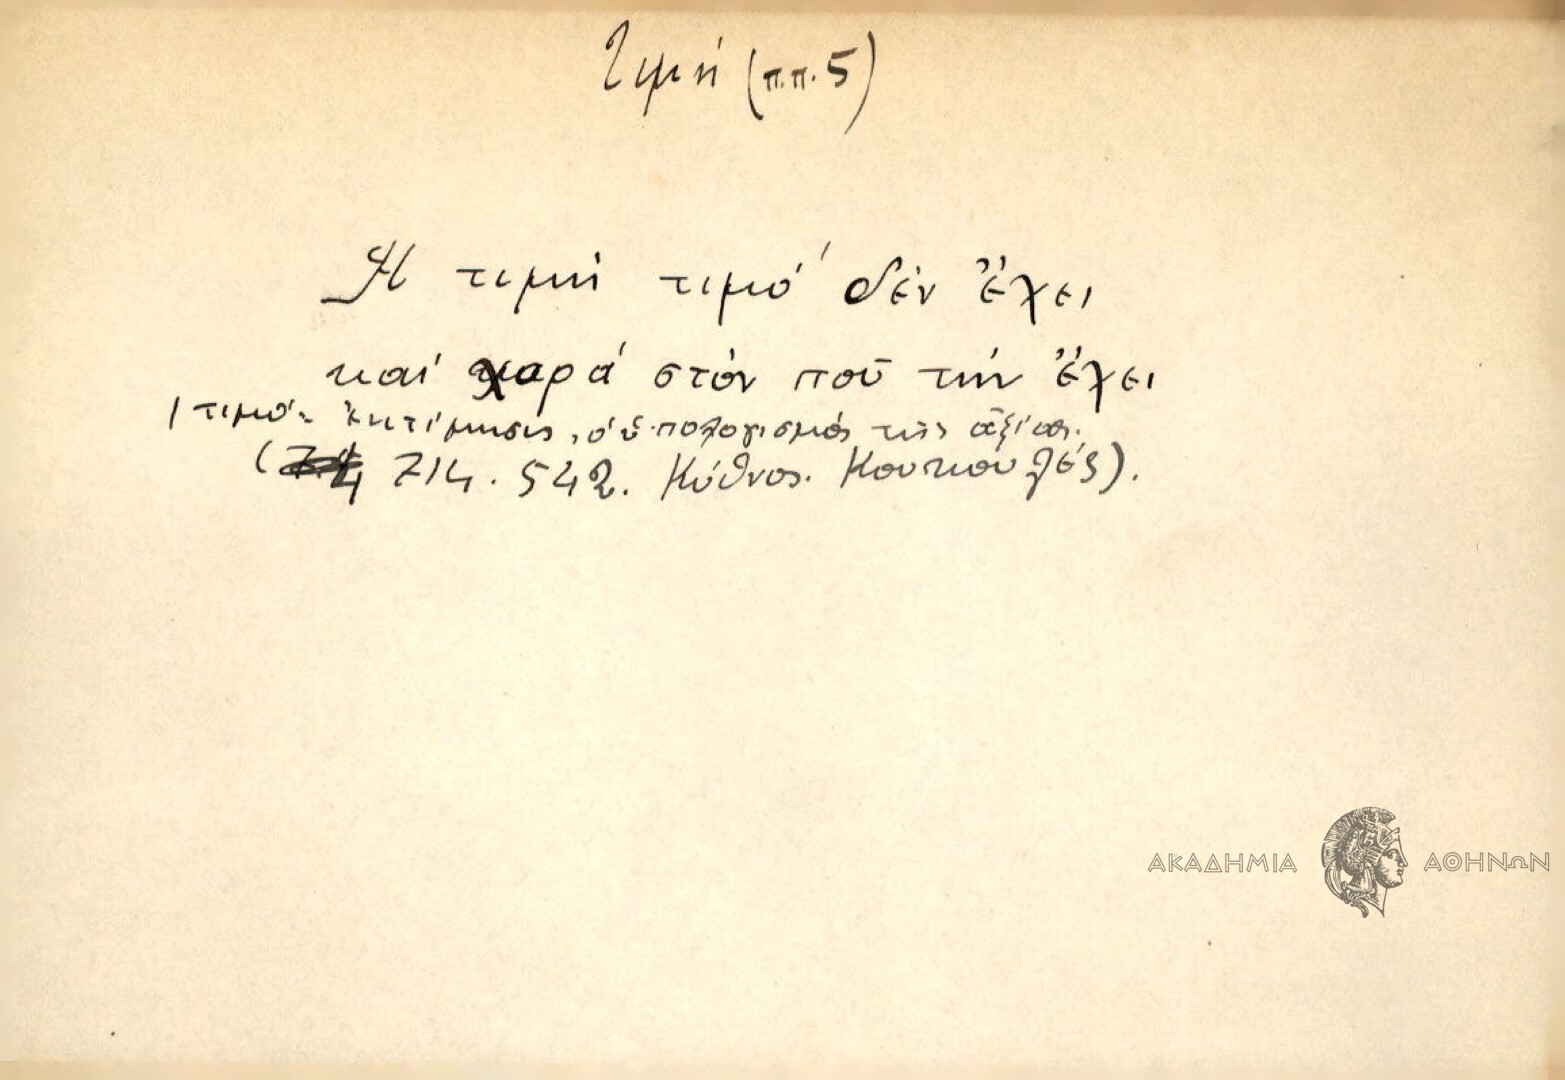 Τιμή (π.π. 5)
Ἡ τιμή τιμό' δέν ἔχει
καί χαρά στόν ποῦ τήν ἔχει
τιμό = ἐκτίμησις, ὁ ὑπολογισμός τῆς ἀξίας.
( 714. 542. Κύθνος. Κουκουλές).
ΑΚΑΔΗΜΙΑ ΑΘΗΝΩΝ